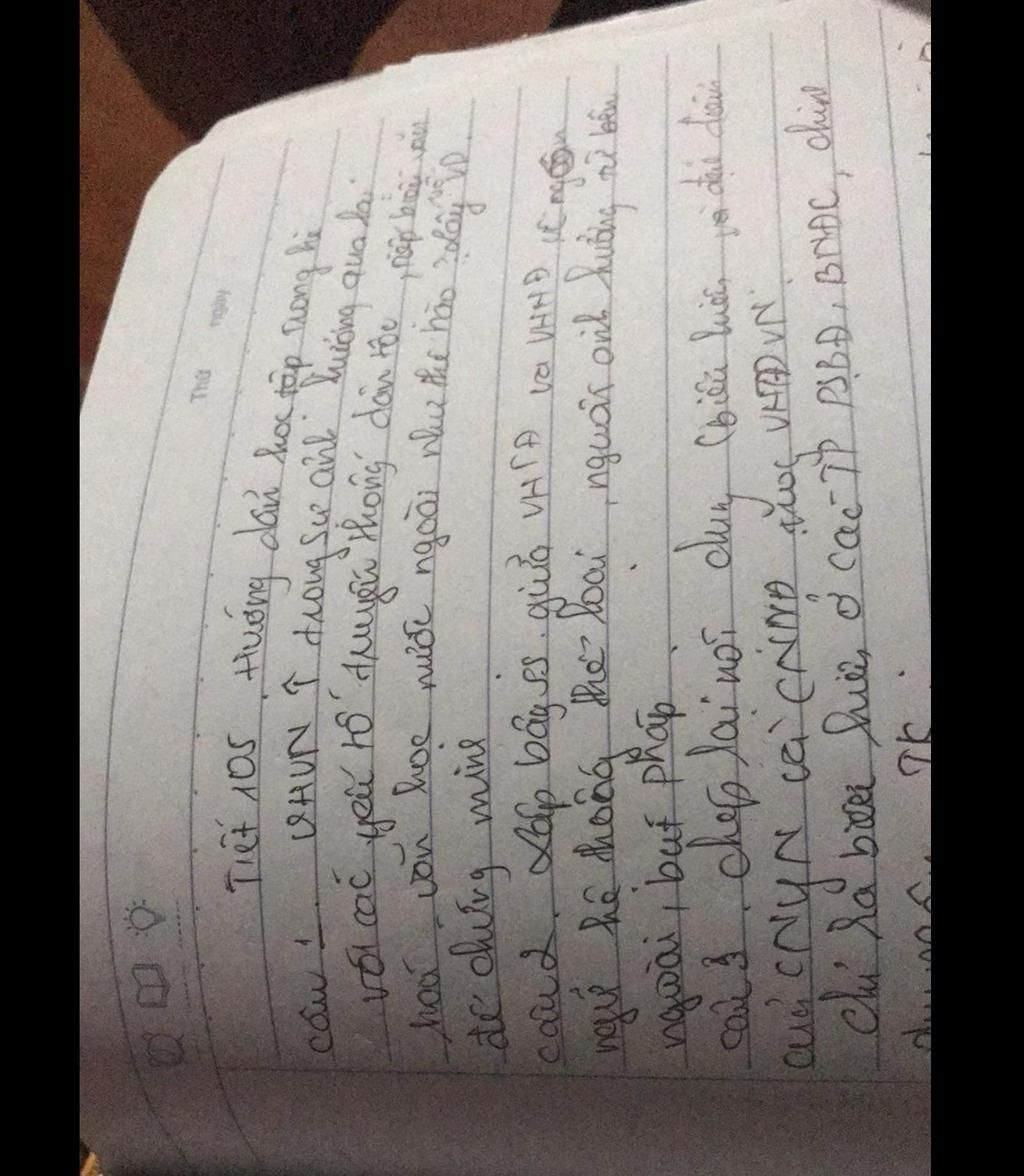 Thứ ngày
Tiết 105 Hướng dẫn học tập trong hè
câu 1. VHVN ↑ trong sự ảnh hưởng qua lại
với các yếu tố truyền thống dân tộc, tiếp biến văn
hoá văn học nước ngoài như thế nào? Lấy VD
để chứng minh
câu 2. Lập bảng SS giữa VHTĐ và VHHĐ về ngôn
ngữ hệ thống thể loại, người ảnh hưởng từ bên
ngoài, bút pháp
câu 3. chép lại nội dung (biểu hiện, và đặc điểm
của CNYN và CNNĐ thuộc VHTĐVN
Chỉ ra biểu hiện ở các TP PSBĐ, BNĐC, chinh